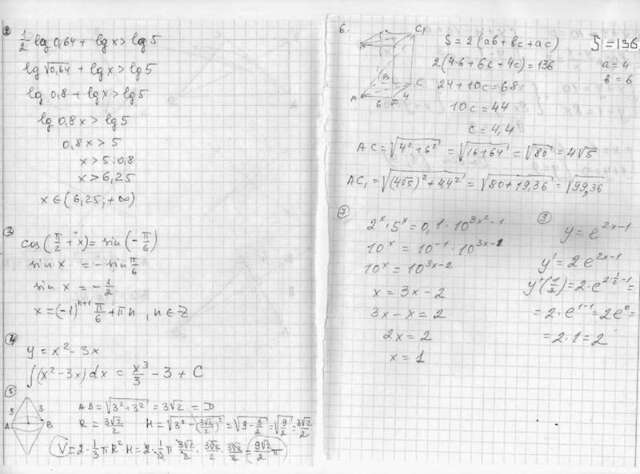 2
1/2 lg 0,64 + lg x > lg 5
lg √0,64 + lg x > lg 5
lg 0,8 + lg x > lg 5
lg 0,8x > lg 5
0,8x > 5
x > 5:0,8
x > 6,25
x ∈ (6,25; +∞)
3
cos(π/2 + x) = sin(-π/6)
sin x = - sin π/6
sin x = - 1/2
x = (-1)^(n+1) π/6 + πn, n ∈ Z
4
y = x² - 3x
∫(x² - 3x) dx = x³/3 - 3 + C
5
3 3
A B
AB = √(3² + 3²) = 3√2 = D
R = 3√2/2 H = √(3² - (3√2/2)²) = √(9 - 9/2) = √(9/2) = 3√2/2
V = 2·1/3 πR² H = 2·1/3 π 3√2/2 · 3√2/2 · 3√2/2 = 9√2/2 π
6.
C₁
B
A C
6 4
S = 2(ab + bc + ac)
S = 136
a = 4
b = 6
2(4·6 + 6c + 4c) = 136
24 + 10c = 68
10c = 44
c = 4,4
AC = √(4² + 6²) = √(16 + 64) = √80 = 4√5
AC₁ = √((4√5)² + 4,4²) = √(80 + 19,36) = √99,36
7
2ˣ · 5ˣ = 0,1 · 10^(3x-1)
10ˣ = 10⁻¹ · 10^(3x-2)
10ˣ = 10^(3x-2)
x = 3x - 2
3x - x = 2
2x = 2
x = 1
y = e^(2x-1)
y' = 2e^(2x-1)
y'(1/2) = 2·e^(2·1/2-1) =
= 2·e^(1-1) = 2e⁰ =
= 2·1 = 2